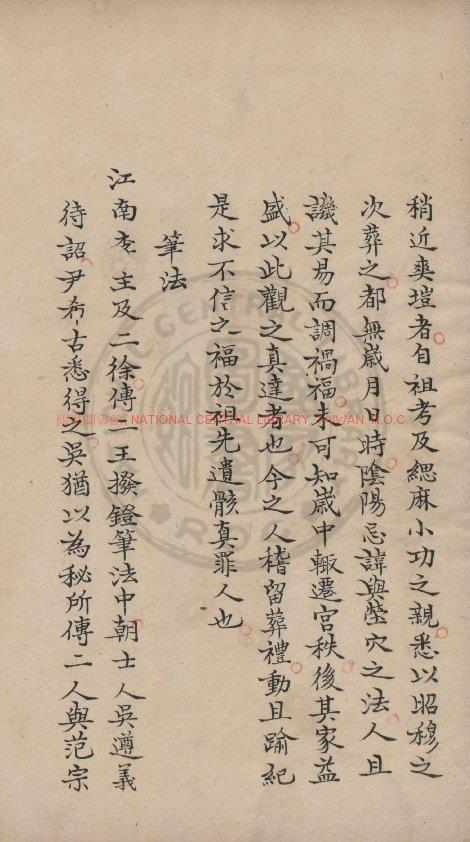 稍近爽塏者自祖考及緦麻小功之親悉以昭穆之
次葬之都無歲月日時陰陽忌諱與塋穴之法人且
譏其易而調禍福未可知歲中輙遷官秩後其家益
盛以此觀之真達者也今之人稽留葬禮動且踰紀
是求不信之福於祖先遺骸真罪人也
筆法
江南李主及二徐傳二王撥鐙筆法中朝士人吳遵義
待詔尹希古悉得之吳猶以為秘所傳二人與范宗
NATIONAL CENTRAL LIBRARY, TAIWAN, R.O.C.